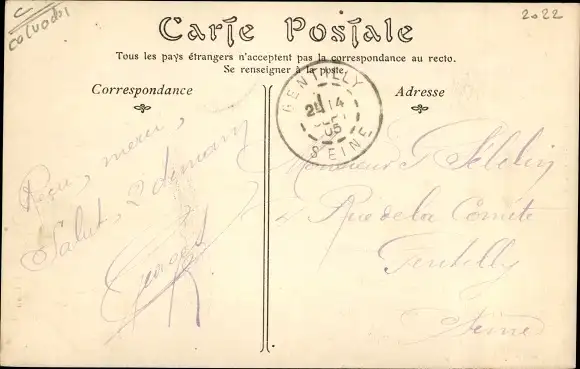 C
calvados
2022
Carte Postale
Tous les pays étrangers n'acceptent pas la correspondance au recto.
Se renseigner à la poste.
Correspondance
Adresse
GENTILLY
14
05
SEINE
Reçu, merci,
Salut, 2 demain
Georges
Monsieur G
2 Rue de la Comète
Gentilly
Seine